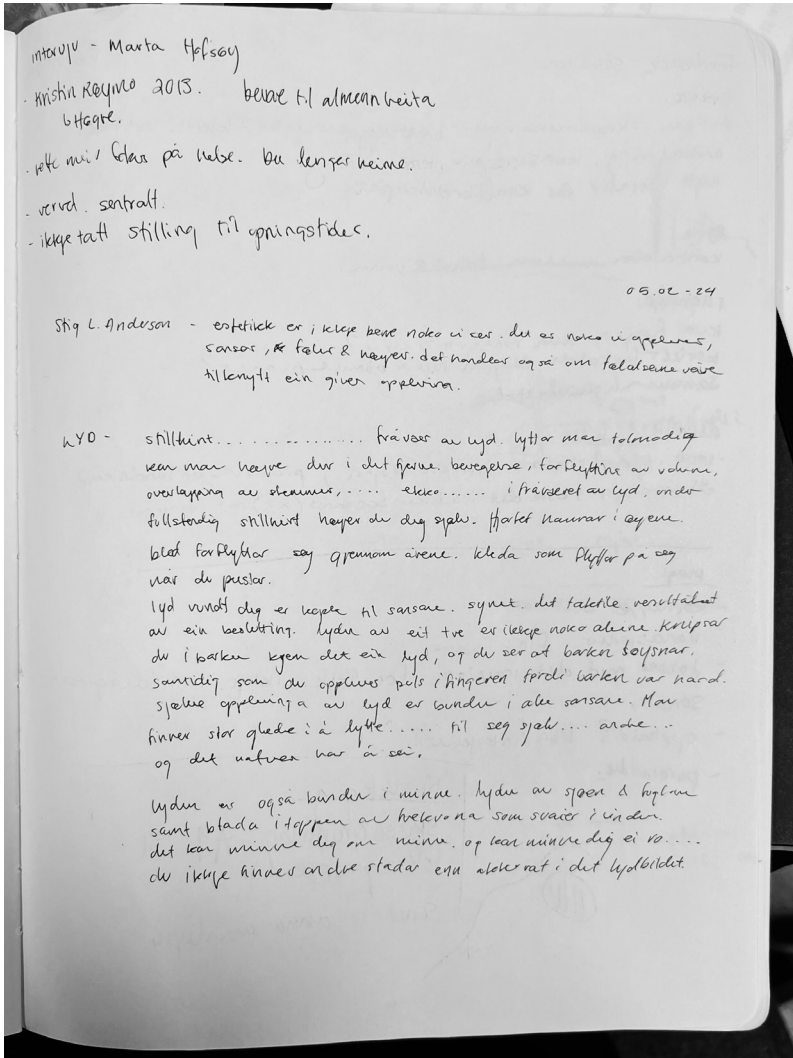 intervju - Marta Hofsøy
- Kristin Røymo 2013. bevare til almennheita
↳ Høgre.
- rette mei / fokus på helse. bu lenger heime.
- vervd. sentralt.
- ikkje tatt stilling til opningstider.
05.02 - 24
Stig L. Anderson - estetikk er ikkje bere noko vi ser. det er noko vi opplever,
sansar, føler & høyrer. det handlar også om følelsene være
tilknytt ein given oppleving.
LYD - stillhint................ fråvær av lyd. lyttar man tolmodig
kan man høyre dur i det fjerne. bevegelse, forflytting av volum,
overlapping av stemmer,.... ekko...... i fråværet av lyd. under
fullstendig stillhint høyer du deg sjølv. Hjartet hamrar i øyrene.
blod forflyttar seg gjennom årene. kleda som flyttar på seg
når du pustar.
lyd rundt deg er kopla til sansane. synet. det taktile. resultatet
av ein beslutting. lyden av eit tre er ikkje noko aleine. Knipsar
du i barken kjem det ein lyd, og du ser at barken
samtidig som du opplever puls i fingeren fordi barken var hard.
sjølve opplevinga av lyd er bunden i alle sansane. Man
finner stor glede i å lytte..... til seg sjølv.... andre...
og det naturen har å sei.
lyden er også bunden i minne. lyden av sjøen & fuglane
samt blada i toppen av trekrona som svaier i vinden.
det kan minne deg om minne. og kan minne deg ei ro....
du ikkje finner andre stadar enn akkurat i det lydbildet.